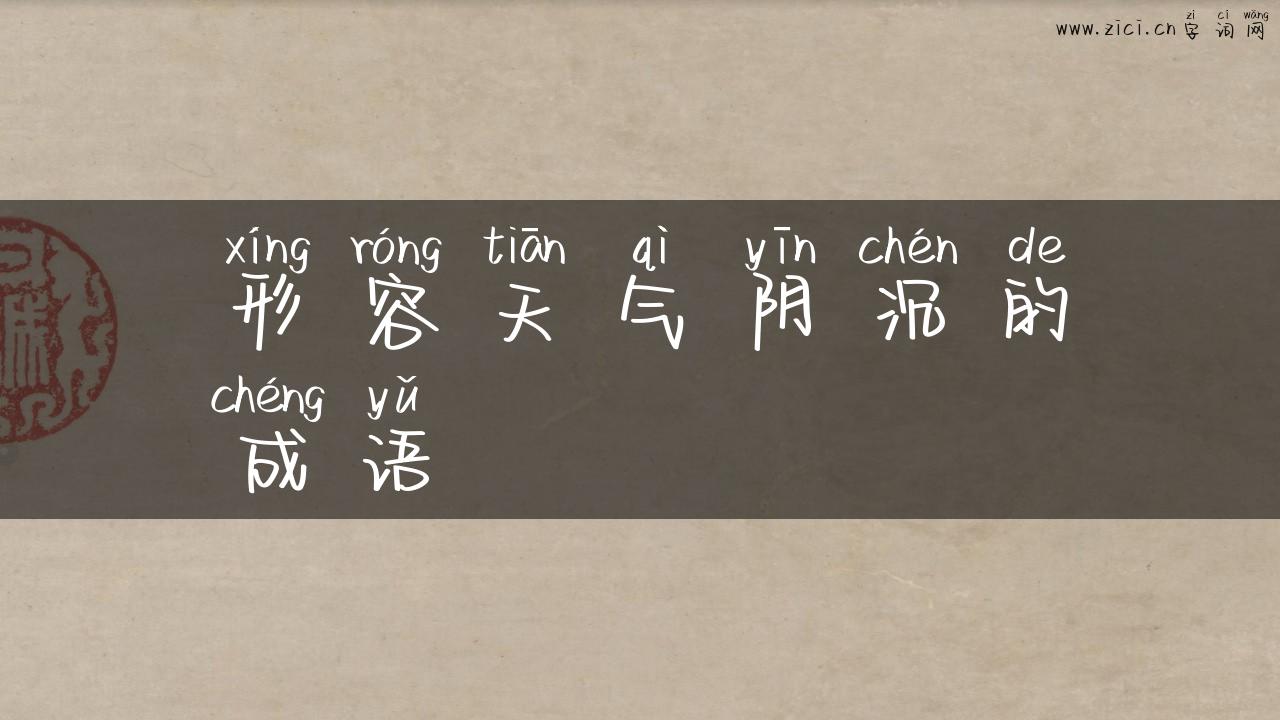 zì cí wǎng
www.zici.cn 字词网
xíng róng tiān qì yīn chén de
形容天气阴沉的
chéng yǔ
成语